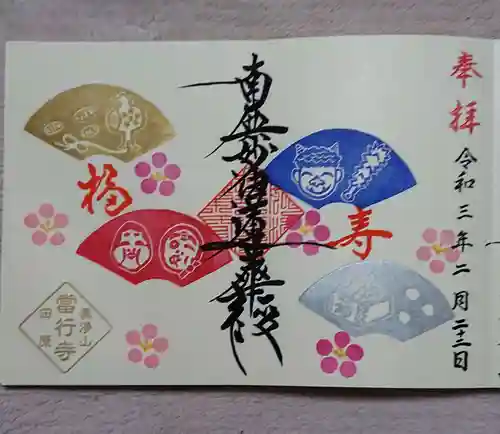 奉拝
令和三年二月二十二日
寿
南無妙法蓮華経
福
當行寺
田原